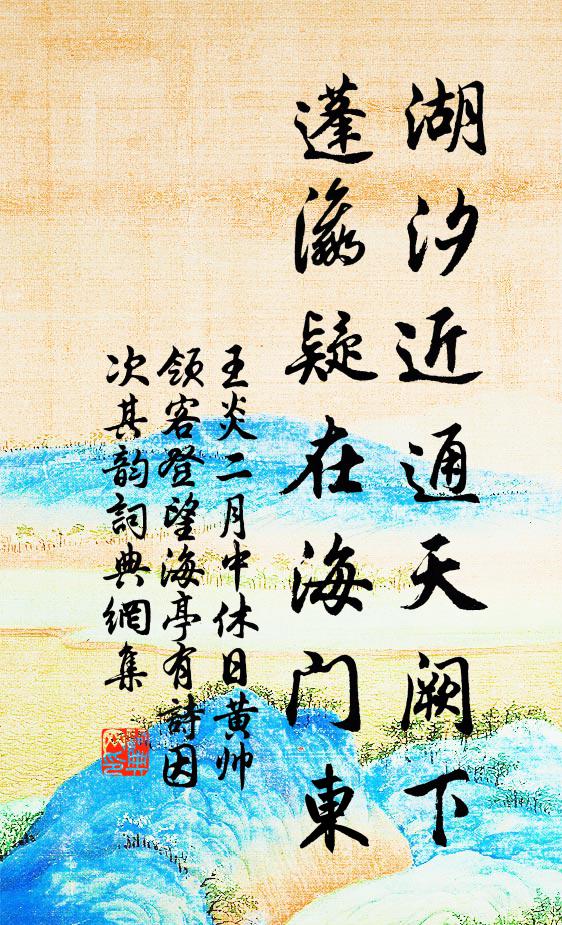 湖汐近通天阙下
蓬瀛疑在海门東
王炎二月中休日黄帅
领客登望海亭有詩因
次其韵詞典網集